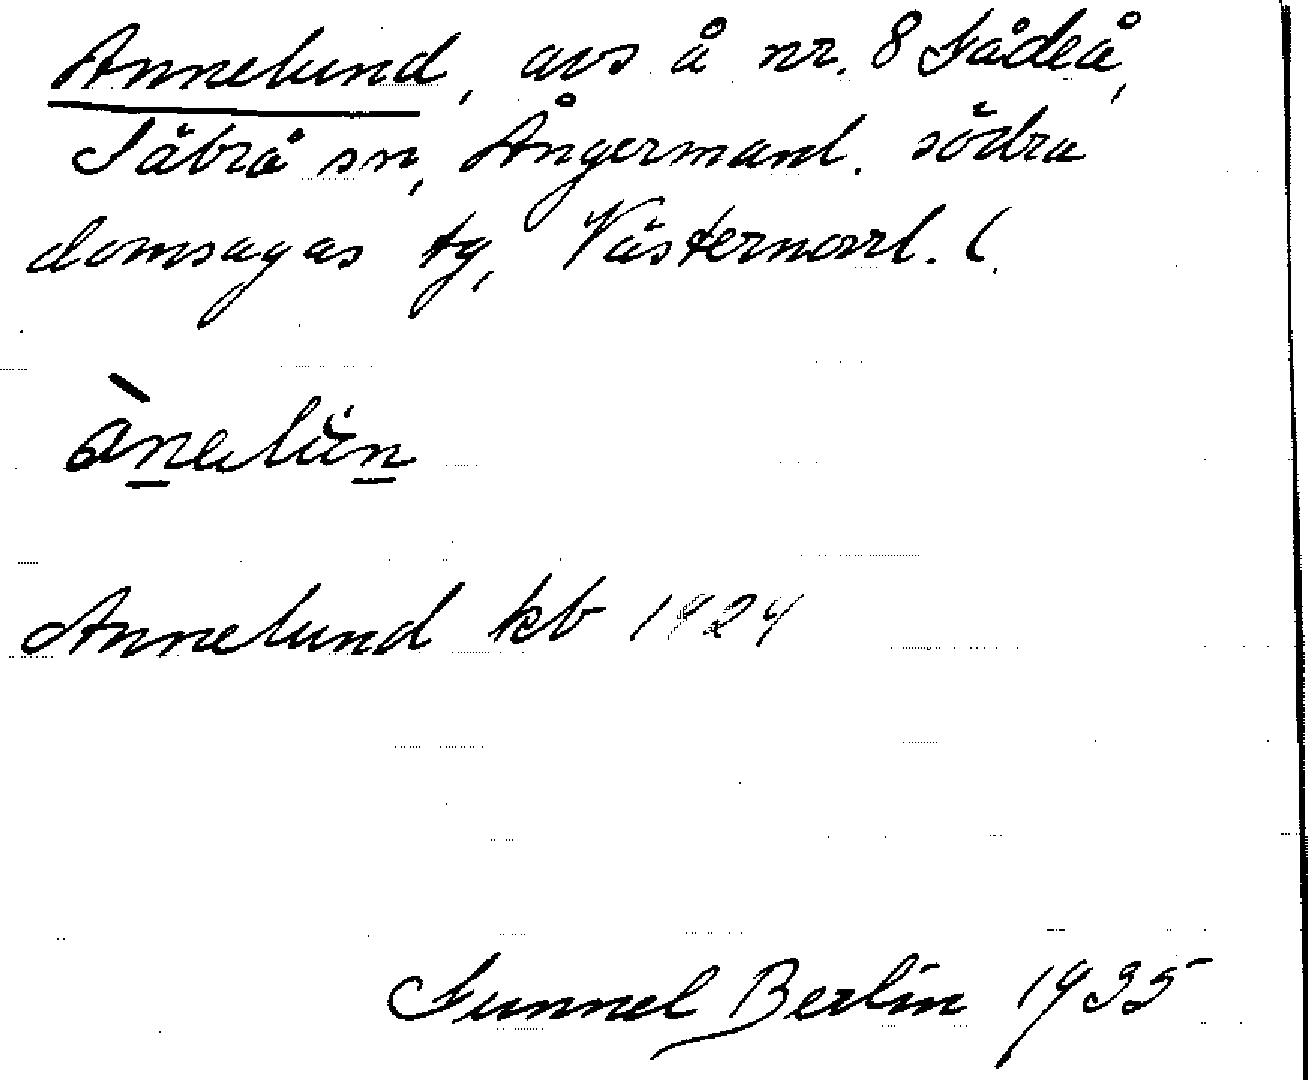 Annelund, avs å nr. 8 Fådeå,
Säbrå sn, Ångermanl. södra
domsagas tg, Västernorrl. l.
Annelund kb 1924
Gunnel Berlin 1935